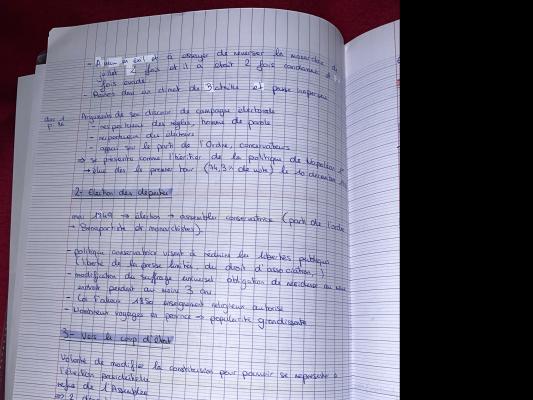 - A vécu en exil et à essayer de renverser la monarchie de
juillet 2 fois et il a était 2 fois condamné et
fois évadé
- Revient dans un climat de et passe inaperçu
doc 1
Arguments de son discours de campagne électorale
- respectueux des règles, homme de parole
- respectueux des électeurs
- appui sur le parti de l'Ordre, conservateurs
⇒ se présente comme l'héritier de la politique de Napoléon 1er
→ élue dès le premier tour (74,3% de voix) le 10 décembre
2- élection des députés
mai 1849 → élection → assemblée conservatrice (parti de l'ordre
→ Bonapartiste et monarchistes)
- politique conservatrice visant à réduire les libertés publiques
(liberté de la presse limitée, du droit d'association, )
- modification du suffrage universel obligation de résidence au même
endroit pendant au moins 3 ans
- Loi Falloux 1850 enseignement religieux autorisé
- Nombreux voyages en province → popularité grandissante
3- Vers le coup d'état
Volonté de modifier la constitution pour pouvoir se représenter à
l'élection présidentielle
refus de l'Assemblée
⇒ 2